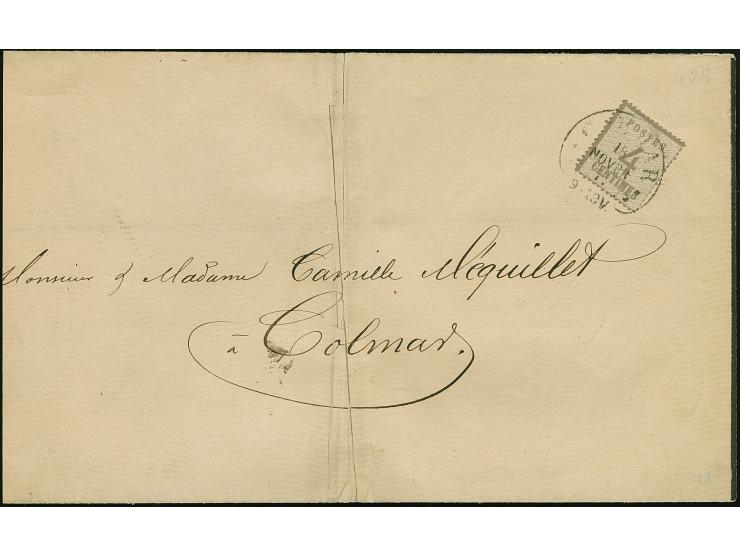 POSTES
4
CENTIMES
18
NOV
R
9-10V.
Monsieur & Madame Camille Méquillet
à Colmar.